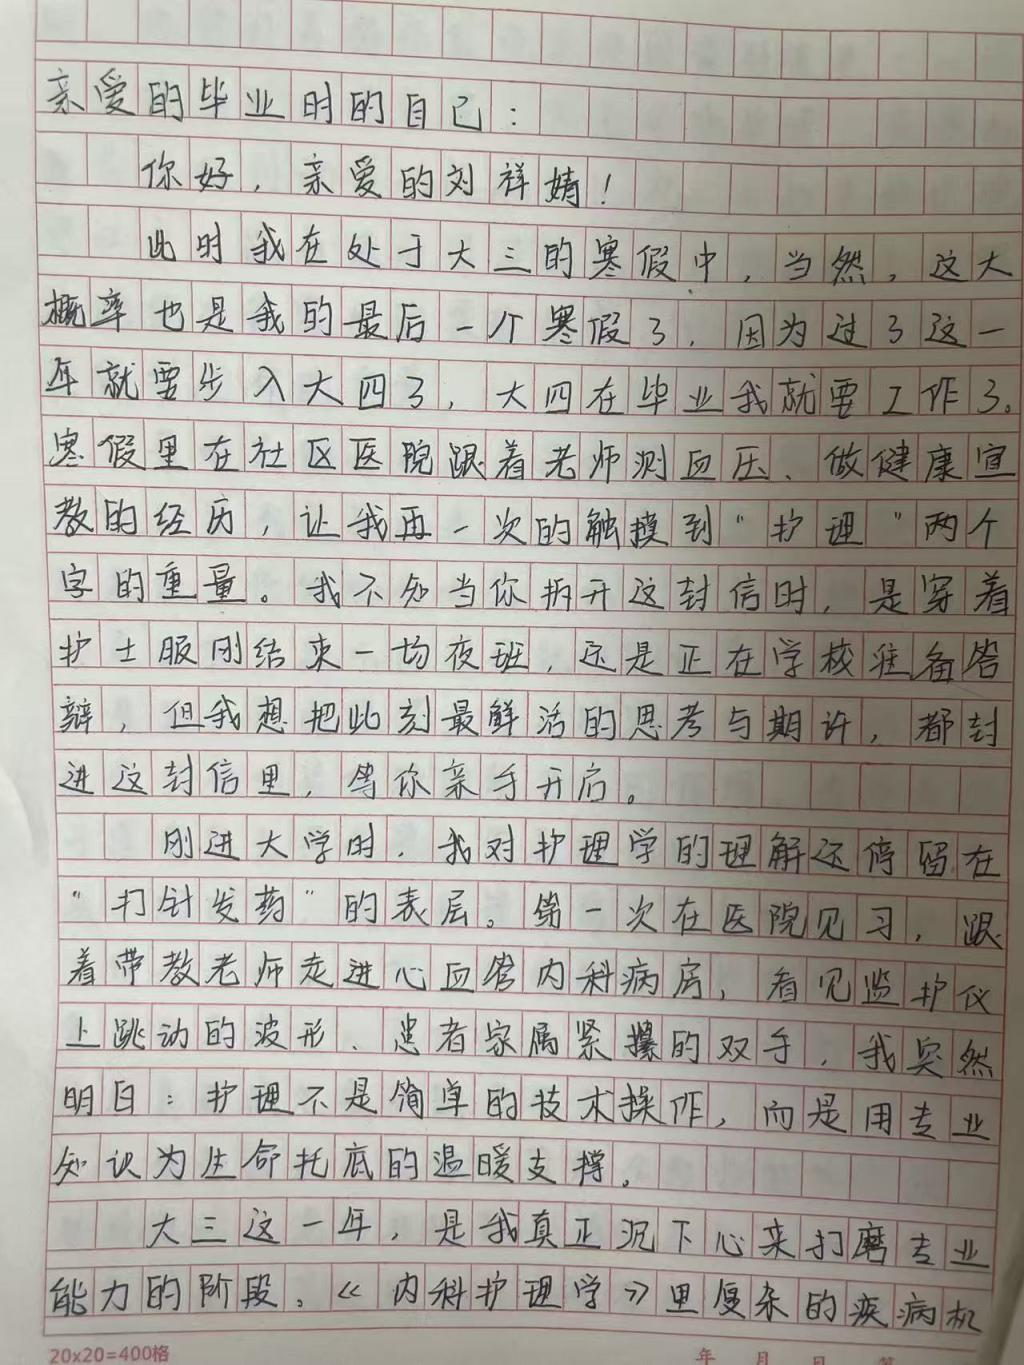 亲爱的毕业时的自己：
你好，亲爱的刘祥婧！
此时我在处于大三的寒假中，当然，这大
概率也是我的最后一个寒假了，因为过了这一
年就要步入大四了，大四在毕业我就要工作了。
寒假里在社区医院跟着老师测血压、做健康宣
教的经历，让我再一次的触摸到“护理”两个
字的重量。我不知当你拆开这封信时，是穿着
护士服刚结束一场夜班，还是正在学校准备答
辩，但我想把此刻最鲜活的思考与期许，都封
进这封信里，等你亲手开启。
刚进大学时，我对护理学的理解还停留在
“打针发药”的表层。第一次在医院见习，跟
着带教老师走进心血管内科病房，看见监护仪
上跳动的波形、患者家属紧攥的双手，我突然
明白：护理不是简单的技术操作，而是用专业
知识为生命托底的温暖支撑。
大三这一年，是我真正沉下心来打磨专业
能力的阶段。《内科护理学》里复杂的疾病机
20x20=400格
年 月 日 第